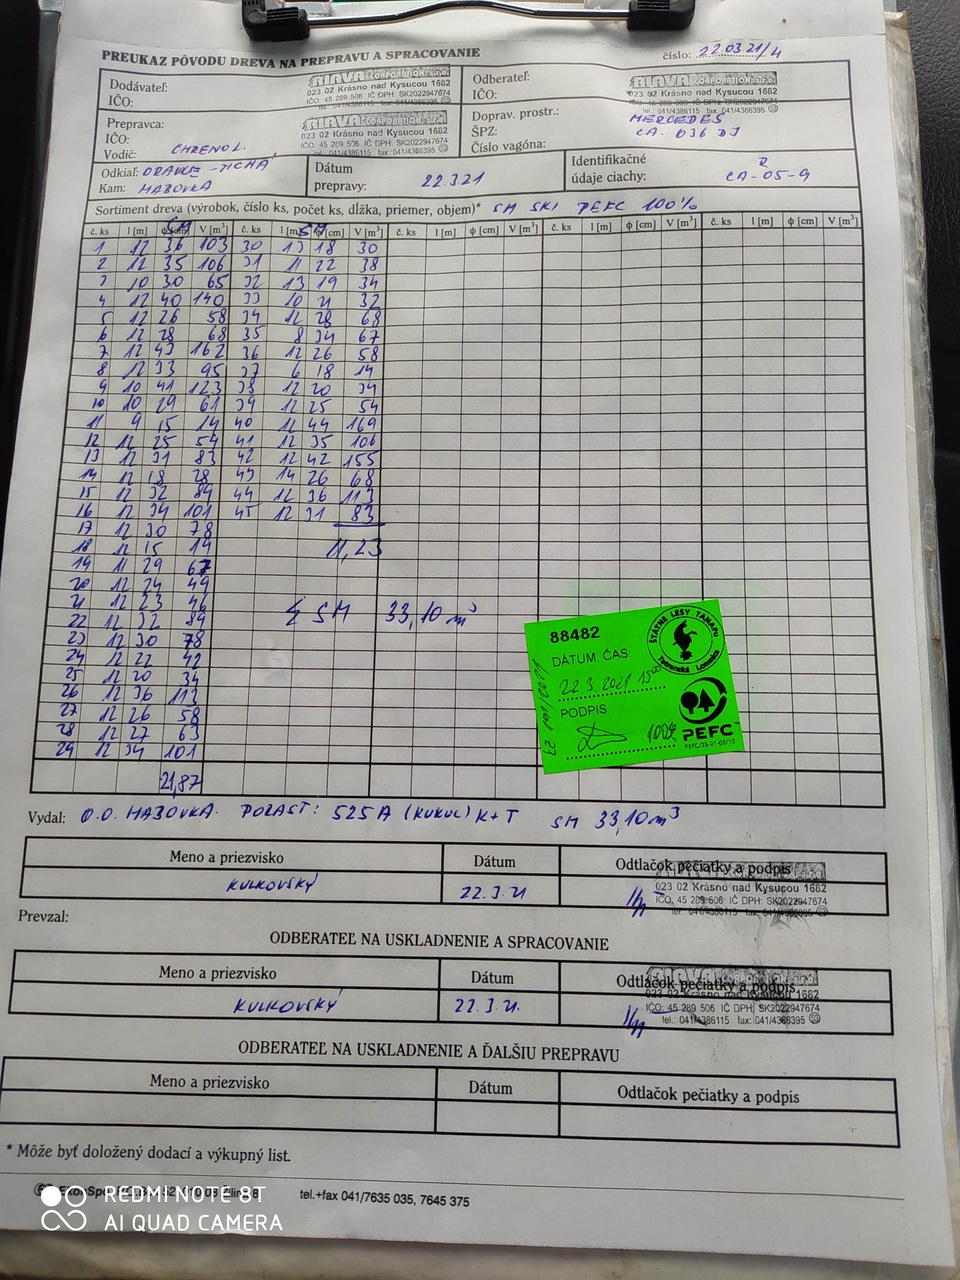 PREUKAZ PÔVODU DREVA NA PREPRAVU A SPRACOVANIE
číslo: 22.03.21/4
Dodávateľ:
IČO:
RIAVA CORPORATION s.r.o.
023 02 Krásno nad Kysucou 1682
IČO: 45 289 506 IČ DPH: SK2022947674
tel.: 041/4386115 fax: 041/4386395
Odberateľ:
IČO:
RIAVA CORPORATION s.r.o.
023 02 Krásno nad Kysucou 1682
IČO: 45 289 506 IČ DPH: SK2022947674
Prepravca:
IČO:
Vodič: CHRENO L.
RIAVA CORPORATION s.r.o.
023 02 Krásno nad Kysucou 1682
IČO: 45 289 506 IČ DPH: SK2022947674
tel.: 041/4386115 fax: 041/4386395
Doprav. prostr.: MERCEDES
ŠPZ: CA-036 DJ
Číslo vagóna:
Odkiaľ: ORAVICE-TICHÁ
Kam: HABOVKA
Dátum
prepravy: 22.3.21
Identifikačné
údaje ciachy: R CA-05-9
Sortiment dreva (výrobok, číslo ks, počet ks, dĺžka, priemer, objem)* SM SKI PEFC 100%
SM SM
č. ks l [m] ϕ [cm] V [m³] č. ks l [m] ϕ [cm] V [m³] č. ks l [m] ϕ [cm] V [m³] č. ks l [m] ϕ [cm] V [m³]
1 12 36 103 30 13 18 30
2 12 35 106 31 11 22 38
3 10 30 65 32 13 19 34
4 12 40 140 33 10 21 32
5 12 26 58 34 12 28 68
6 12 28 68 35 8 34 67
7 12 43 162 36 12 26 58
8 12 33 95 37 6 18 14
9 10 41 123 38 12 20 34
10 10 29 61 39 12 25 54
11 9 15 14 40 12 44 169
12 12 25 54 41 12 35 106
13 12 31 83 42 12 42 155
14 12 18 28 43 14 26 68
15 12 32 89 44 12 36 113
16 12 34 101 45 12 31 83
17 12 30 78
18 12 15 19
11,23
19 11 29 67
20 12 24 49
21 12 23 46
22 12 32 89
Σ SM 33,10 m³
23 12 30 78
24 12 22 42
25 12 20 34
26 12 36 113
27 12 26 58
28 12 27 63
29 12 34 101
21,87
88482
DÁTUM, ČAS:
22.3.2021 15⁰⁰
PODPIS:
100%
ŠTÁTNE LESY TANAPu
Tatranská Lomnica
PEFC
PEFC/23-21-03/10
Vydal: O.O. HABOVKA. PORAST: 525A (KUKUL) K+T SM 33,10 m³
Meno a priezvisko Dátum Odtlačok pečiatky a podpis
KULKOVSKÝ 22.3.21
023 02 Krásno nad Kysucou 1682
IČO: 45 289 506 IČ DPH: SK2022947674
tel.: 041/4386115 fax: 041/4386395
Prevzal:
ODBERATEĽ NA USKLADNENIE A SPRACOVANIE
Meno a priezvisko Dátum Odtlačok pečiatky a podpis
KULKOVSKÝ 22.3.21.
RIAVA CORPORATION s.r.o.
023 02 Krásno nad Kysucou 1682
IČO: 45 289 506 IČ DPH: SK2022947674
tel.: 041/4386115 fax: 041/4386395
ODBERATEĽ NA USKLADNENIE A ĎALŠIU PREPRAVU
Meno a priezvisko Dátum Odtlačok pečiatky a podpis
* Môže byť doložený dodací a výkupný list.
tel.+fax 041/7635 035, 7645 375
REDMI NOTE 8T
AI QUAD CAMERA